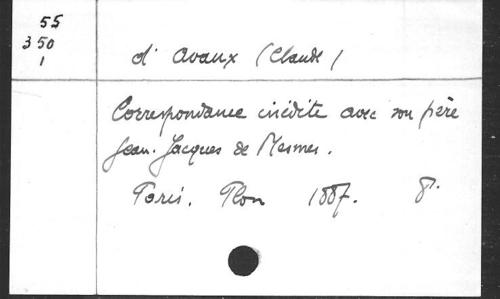 55
350
1
d'Avaux (Claude)
Correspondance inédite avec son père
Jean-Jacques de Mesmes.
Paris. Plon 1887. 8°.